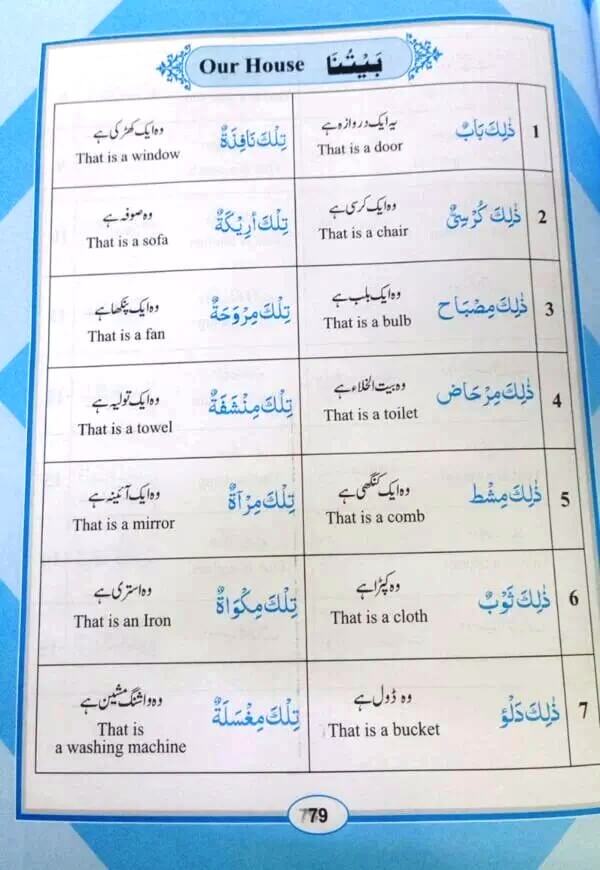 Our House بَيْتُنَا
1
ذٰلِكَ بَابٌ
یہ ایک دروازہ ہے
That is a door
تِلْكَ نَافِذَةٌ
وہ ایک کھڑکی ہے
That is a window
2
ذٰلِكَ كُرْسِيٌّ
وہ ایک کرسی ہے
That is a chair
تِلْكَ أرِيْكَةٌ
وہ صوفہ ہے
That is a sofa
3
ذٰلِكَ مِصْبَاح
وہ ایک بلب ہے
That is a bulb
تِلْكَ مِرْوَحَةٌ
وہ ایک پنکھا ہے
That is a fan
4
ذٰلِكَ مِرْحَاض
وہ بیت الخلاء ہے
That is a toilet
تِلْكَ مِنْشَفَةٌ
وہ ایک تولیہ ہے
That is a towel
5
ذٰلِكَ مِشْط
وہ ایک کنگھی ہے
That is a comb
تِلْكَ مِرْآةٌ
وہ ایک آئینہ ہے
That is a mirror
6
ذٰلِكَ ثَوْبٌ
وہ کپڑا ہے
That is a cloth
تِلْكَ مِكْوَاةٌ
وہ استری ہے
That is an Iron
7
ذٰلِكَ دَلْوٌ
وہ ڈول ہے
That is a bucket
تِلْكَ مِغْسَلَةٌ
وہ واشنگ مشین ہے
That is
a washing machine
779